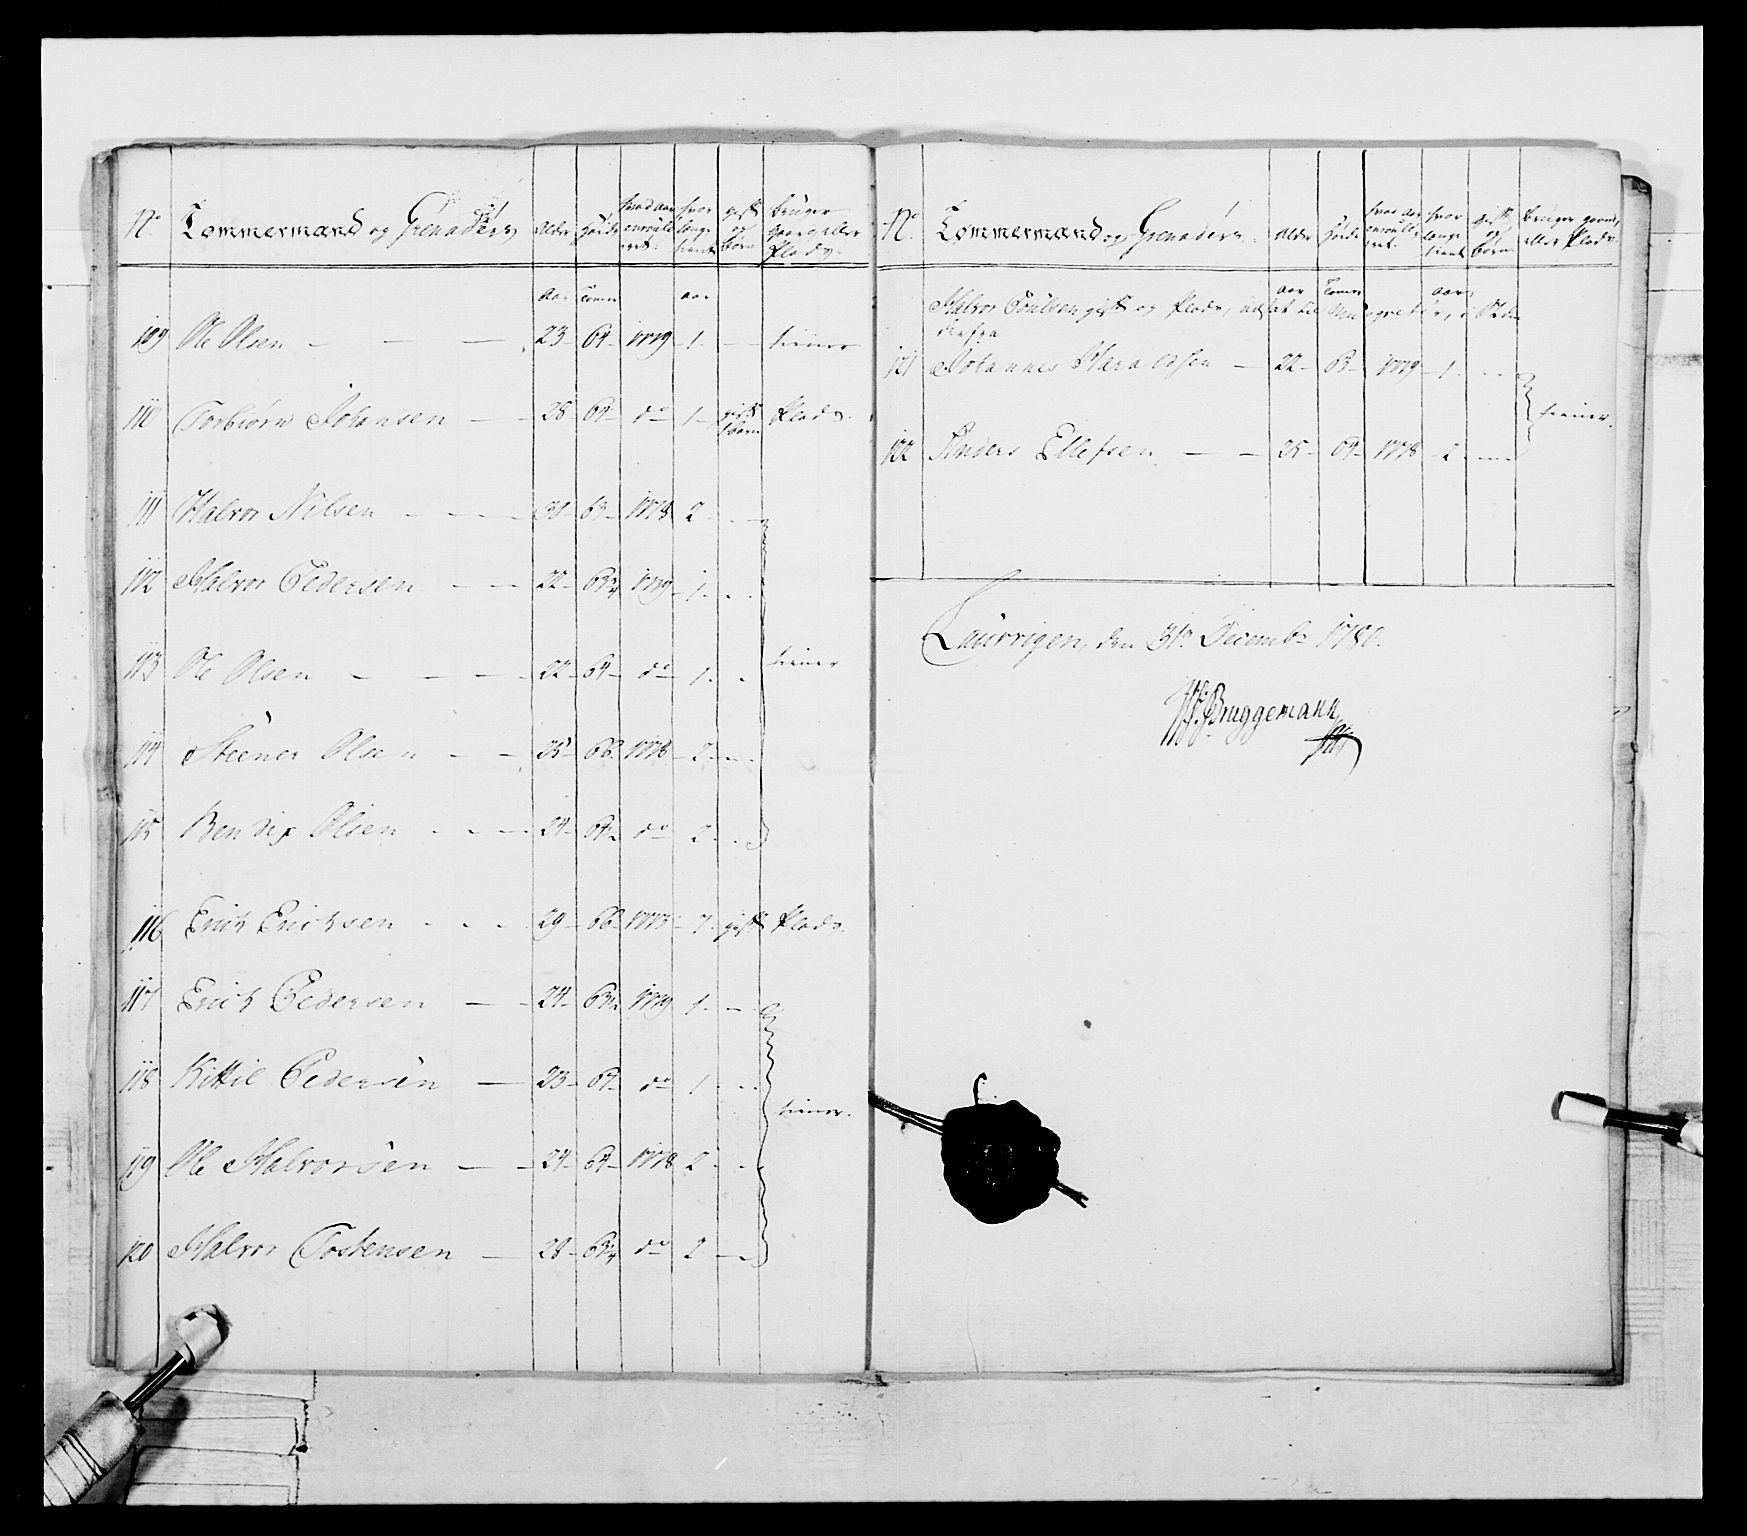 No. Tømmermænd og Grenaderer Alder Høide hvad aar enroulleret hvor længe tient gift og børn bruger gaard eller Plads
aar Tomer aar
109 Ole Olsen — — — 23 64 1779 1 — tiener
110 Torbiørn Johansen — 28 64 do 1 gift 1 barn Plads
111 Halvor Nilsen — — 30 63 1778 2
112 Halvor Pedersen — — 22 63¾ 1779 1
113 Ole Olsen — — — 22 64 do 1 tiener
114 Steener Olsen — — 25 66 1778 2
115 Bendix Olsen — — 24 64½ do 2
116 Erich Erichsen — — 29 66 1773 7 gift Plads
117 Erich Pedersen — — 24 63½ 1779 1
118 Kittil Pedersen — 23 64 do 1 tiener
119 Ole Halvorsen — — 24 64 1778 2
120 Halvor Tostensen — 28 63¾ do 2
No. Tømmermænd og Grenaderer Alder Høide hvad aar enroulleret hvor længe tient gift og børn bruger gaard, eller Plads
aar Tomer aar
Halvor Poulsen gift og Plads, udsat til
121 Johannes Haraldsen — 22 63 1779 1
tiener
122 Anders Ellefsen — — 25 64 1778 2
Laurvigen, den 31te Decembr 1780.
Bruggemann